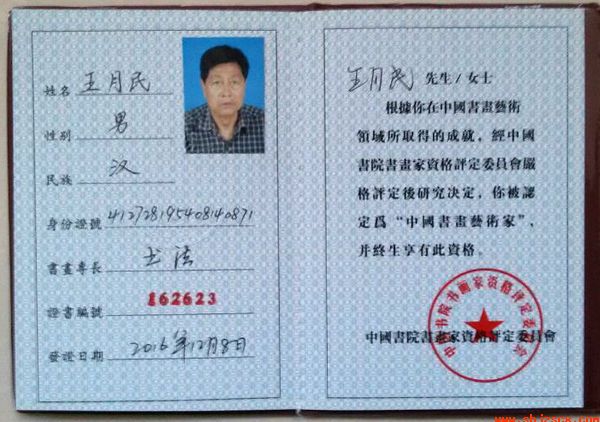 姓名 王月民
性別 男
民族 汉
身份證號 412728195408140871
書畫專長 书法
證書編號 862623
發證日期 2016年12月8日
王月民 先生/女士
根據你在中國書畫藝術
領域所取得的成就，經中國
書院書畫家資格評定委員會嚴
格評定後研究决定，你被認
定爲“中國書畫藝術家”，
并終生享有此資格。
中國書院書畫家資格評定委員會
中国书院书画家资格评定委员会